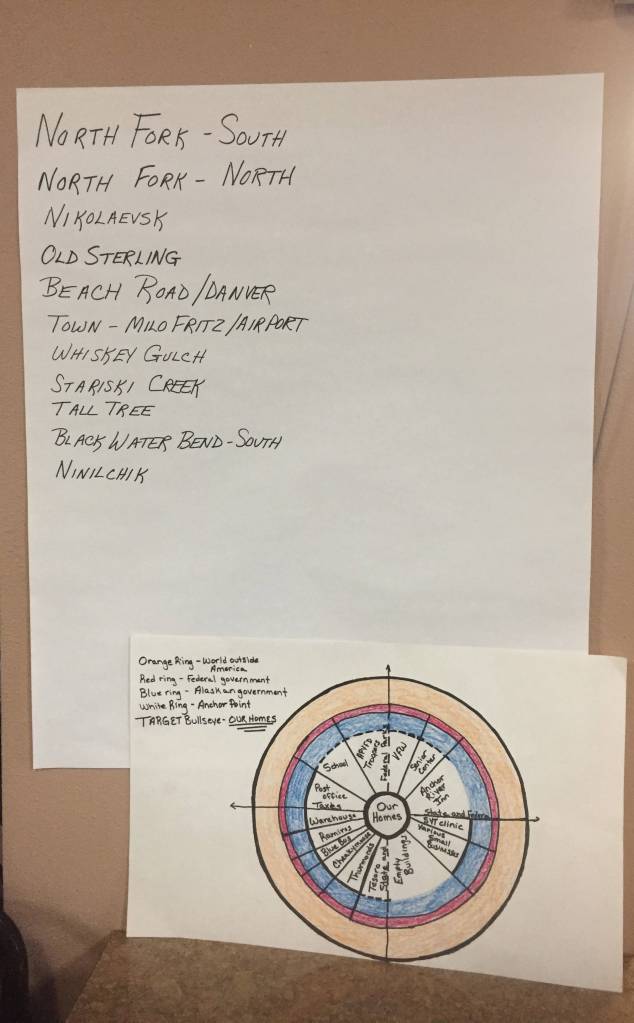 NORTH FORK - SOUTH
NORTH FORK - NORTH
NIKOLAEVSK
OLD STERLING
BEACH ROAD/DANVER
TOWN - MILO FRITZ/AIRPORT
WHISKEY GULCH
STARISKI CREEK
TALL TREE
BLACK WATER BEND-SOUTH
NINILCHIK
Orange Ring - World outside
America
Red ring - Federal government
Blue ring - Alaskan government
White Ring - Anchor Point
TARGET Bullseye - OUR HOMES
School
Troopers
Federal
VFW
Senior
Center
Anchor
River
Inn
Post
office
Taxes
Warehouse
Ramiros
Blue Bus
Thurmonds
Tesoro
State and
Empty
Buildings
Our
Homes
State and Federal
SVT clinic
Various
Small
Businesses